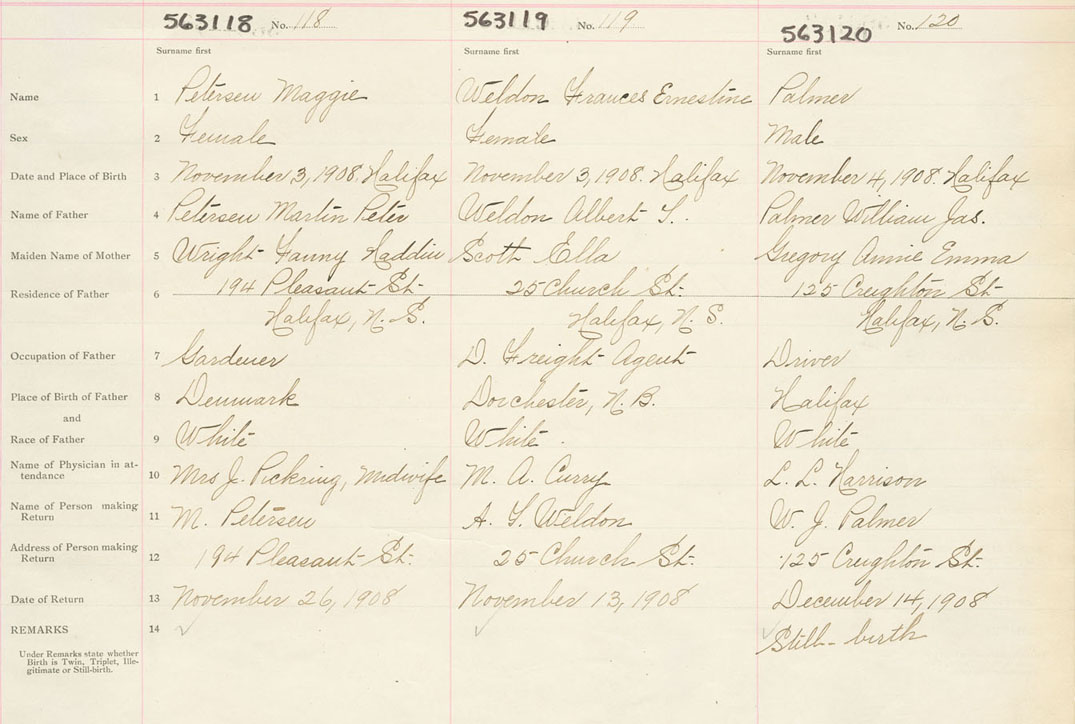 563118 No. 118 563119 No. 119 563120 No. 120
Surname first Surname first Surname first
Name 1 Petersen Maggie Weldon Frances Ernestine Palmer
Sex 2 Female Female Male
Date and Place of Birth 3 November 3, 1908 Halifax November 3, 1908. Halifax November 4, 1908. Halifax
Name of Father 4 Petersen Martin Peter Weldon Albert S. Palmer William Jas.
Maiden Name of Mother 5 Wright Fanny Haddin Scott Ella Gregory Annie Emma
194 Pleasant St. 25 Church St. 125 Creighton St.
Residence of Father 6
Halifax, N.S. Halifax, N.S. Halifax, N.S.
Occupation of Father 7 Gardener D. Freight Agent Driver
Place of Birth of Father 8 Denmark Dorchester, N.B. Halifax
and
Race of Father 9 White White. White
Name of Physician in at-
tendance 10 Mrs J. Pickring, Midwife M. A. Curry L. L. Harrison
Name of Person making
Return 11 M. Petersen A. S. Weldon W. J. Palmer
Address of Person making
Return 12 194 Pleasant St. 25 Church St. 125 Creighton St.
Date of Return 13 November 26, 1908 November 13, 1908 December 14, 1908
REMARKS 14 Still-birth
Under Remarks state whether
Birth is Twin, Triplet, Ille-
gitimate or Still-birth.